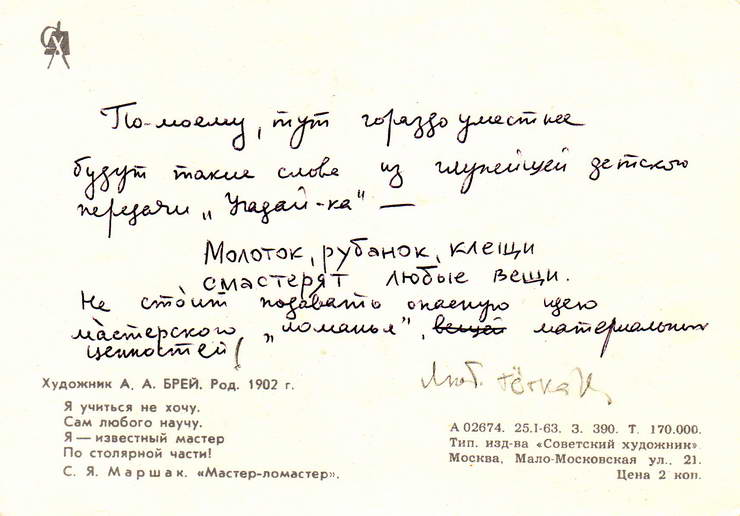 СХ
По-моему, тут гораздо уместнее
будут такие слова из глупейшей детской
передачи „Угадай-ка" —
Молоток, рубанок, клещи
смастерят любые вещи.
Не стоит подавать опасную идею
мастерского „ломанья", вещей материальных
ценностей!
Люб. тётка И.
Художник А. А. БРЕЙ. Род. 1902 г.
Я учиться не хочу.
Сам любого научу.
Я — известный мастер
По столярной части!
С. Я. Маршак. «Мастер-ломастер».
А 02674. 25.I-63. З. 390. Т. 170.000.
Тип. изд-ва «Советский художник»
Москва, Мало-Московская ул., 21.
Цена 2 коп.